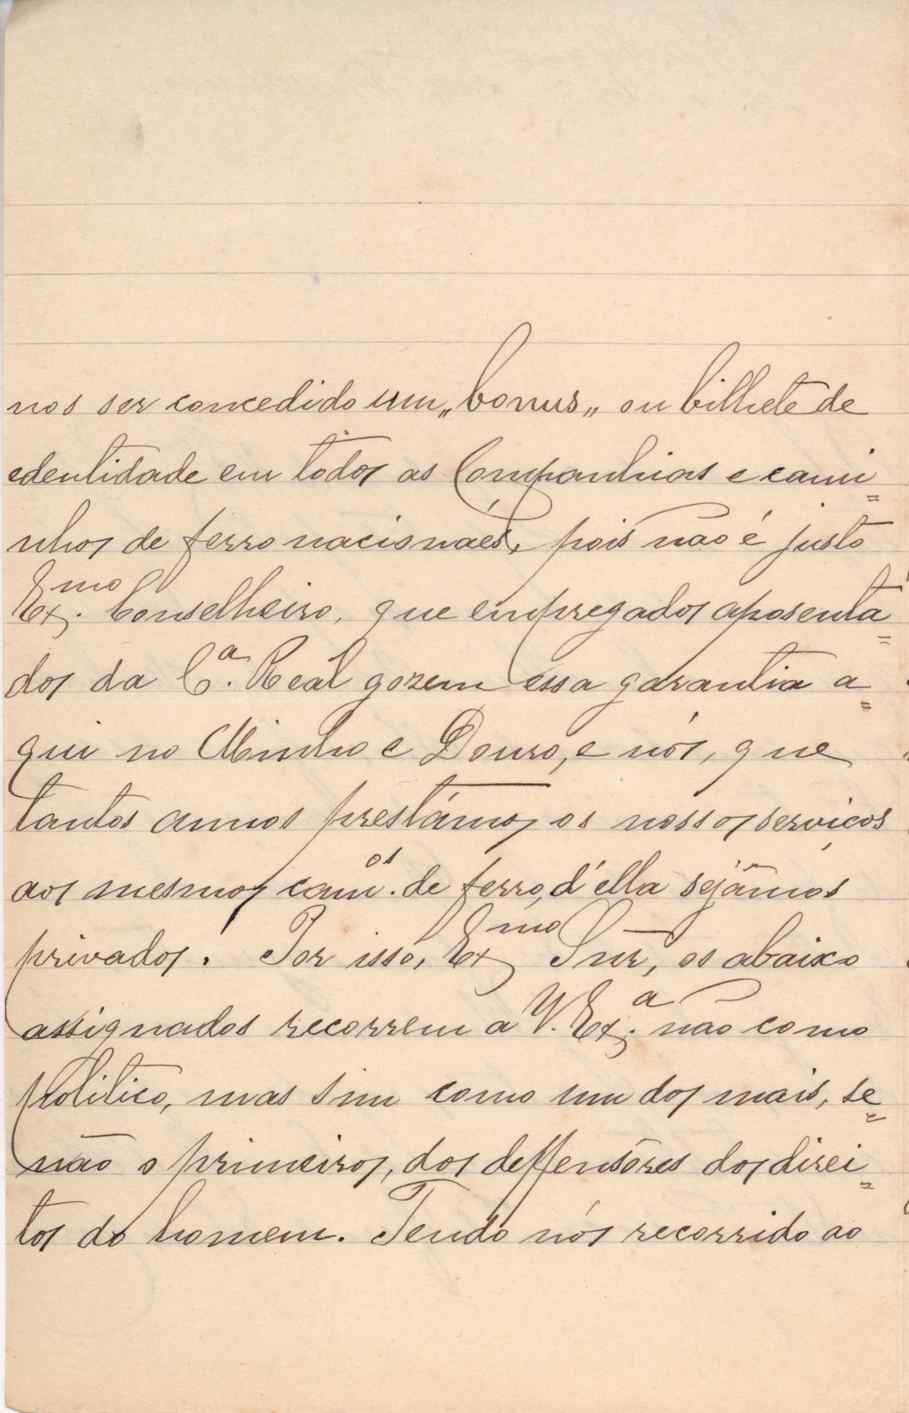 nos ser concedido um „bonus„ ou bilhete de
edentidade em todos as Companhias e cami=
nhos de ferro nacionáes, pois não é justo
Ex.mo Conselheiro, que empregados aposenta=
dos da C.a Real gozem essa garantia a=
qui no Minho e Douro, e nós, que
tantos annos prestámos os nossos serviços
aos mesmos camos. de ferro, d'ella sejâmos
privados. Por isso, Exmo Snr, os abaixo
assignados recorrem a V. Ex.a não como
politico, mas sim como um dos mais, se=
não o primeiros, dos deffensôres dos direi=
tos do homem. Tendo nós recorrido ao